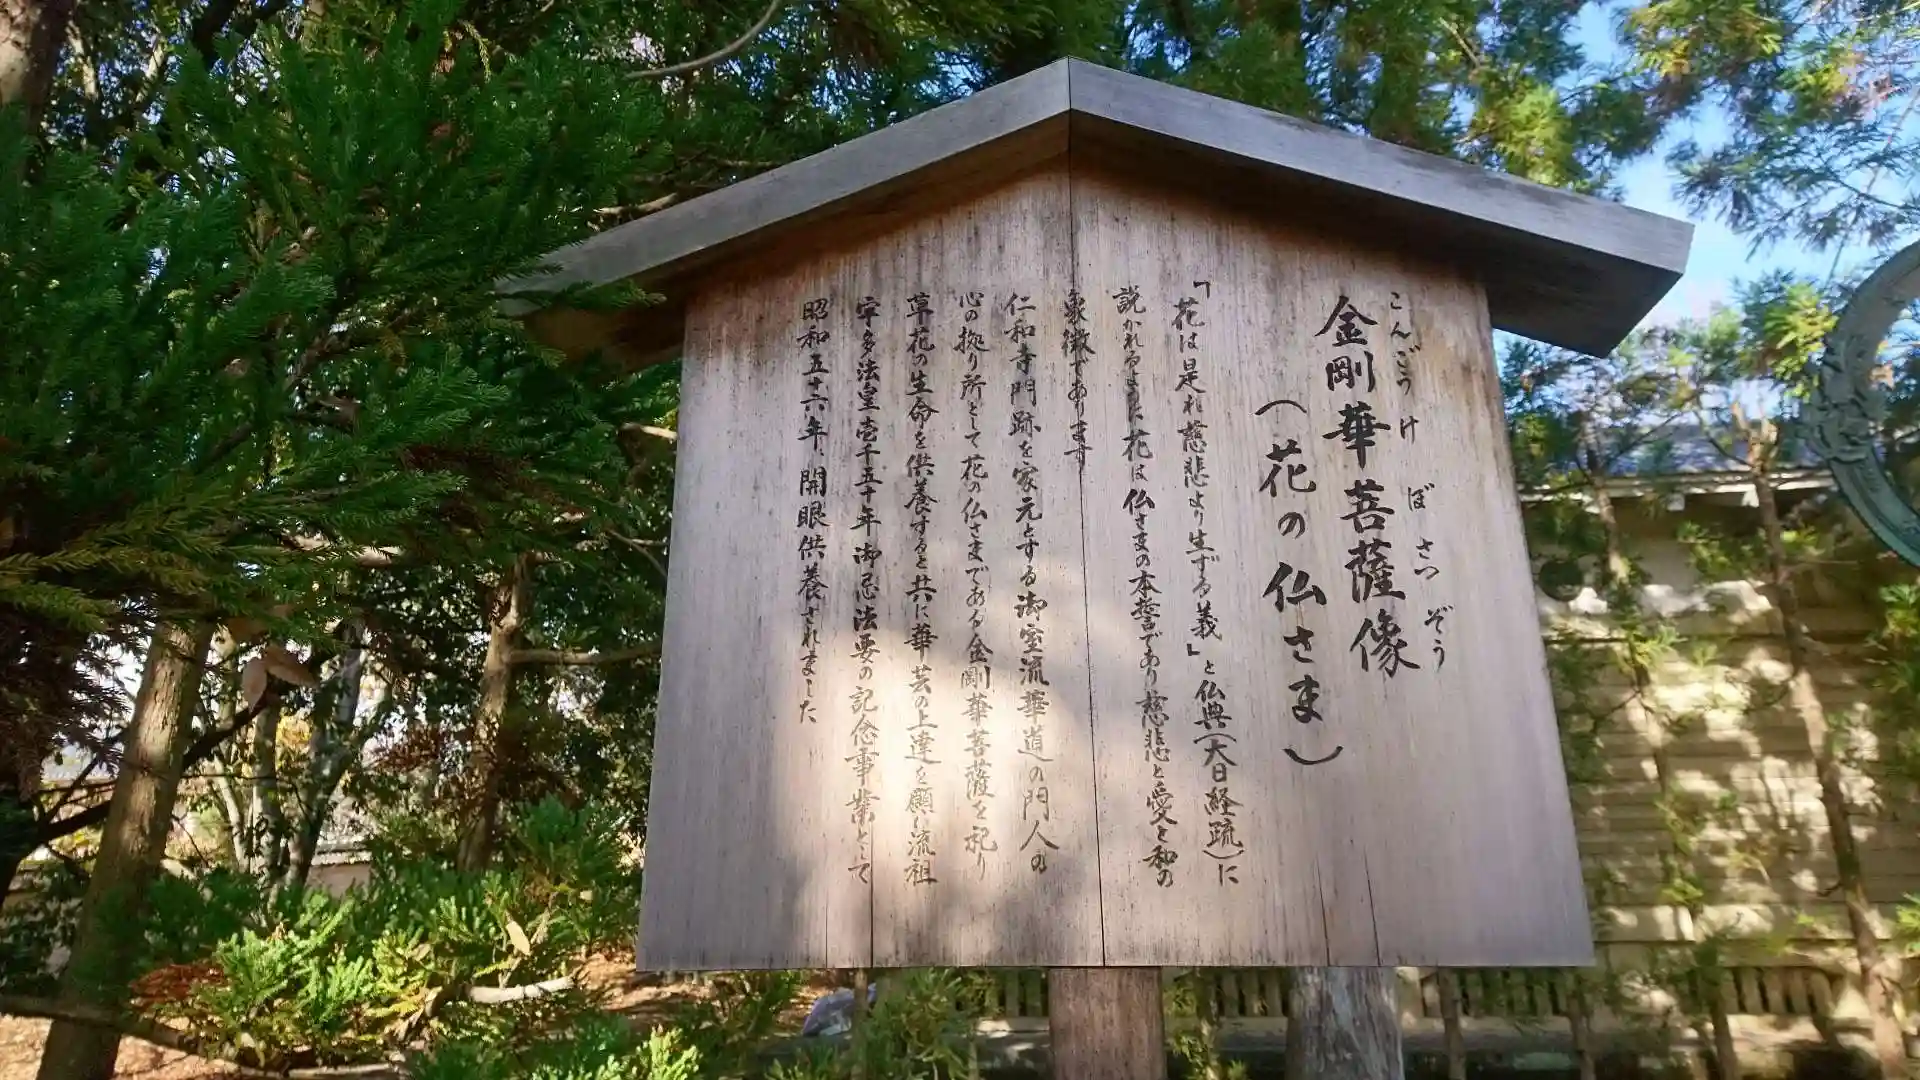 こんごうけぼさつぞう
金剛華菩薩像
(花の仏さま)
「花は是れ慈悲より生ずる義」と仏典(大日経疏)に
説かれるように花は仏さまの本誓であり慈悲と愛と和の
象徴であります
仁和寺門跡を家元とする御室流華道の門人の
心の拠り所として花の仏さまである金剛華菩薩を祀り
草花の生命を供養すると共に華芸の上達を願い流祖
宇多法皇壱千五十年御忌法要の記念事業として
昭和五十六年、開眼供養されました